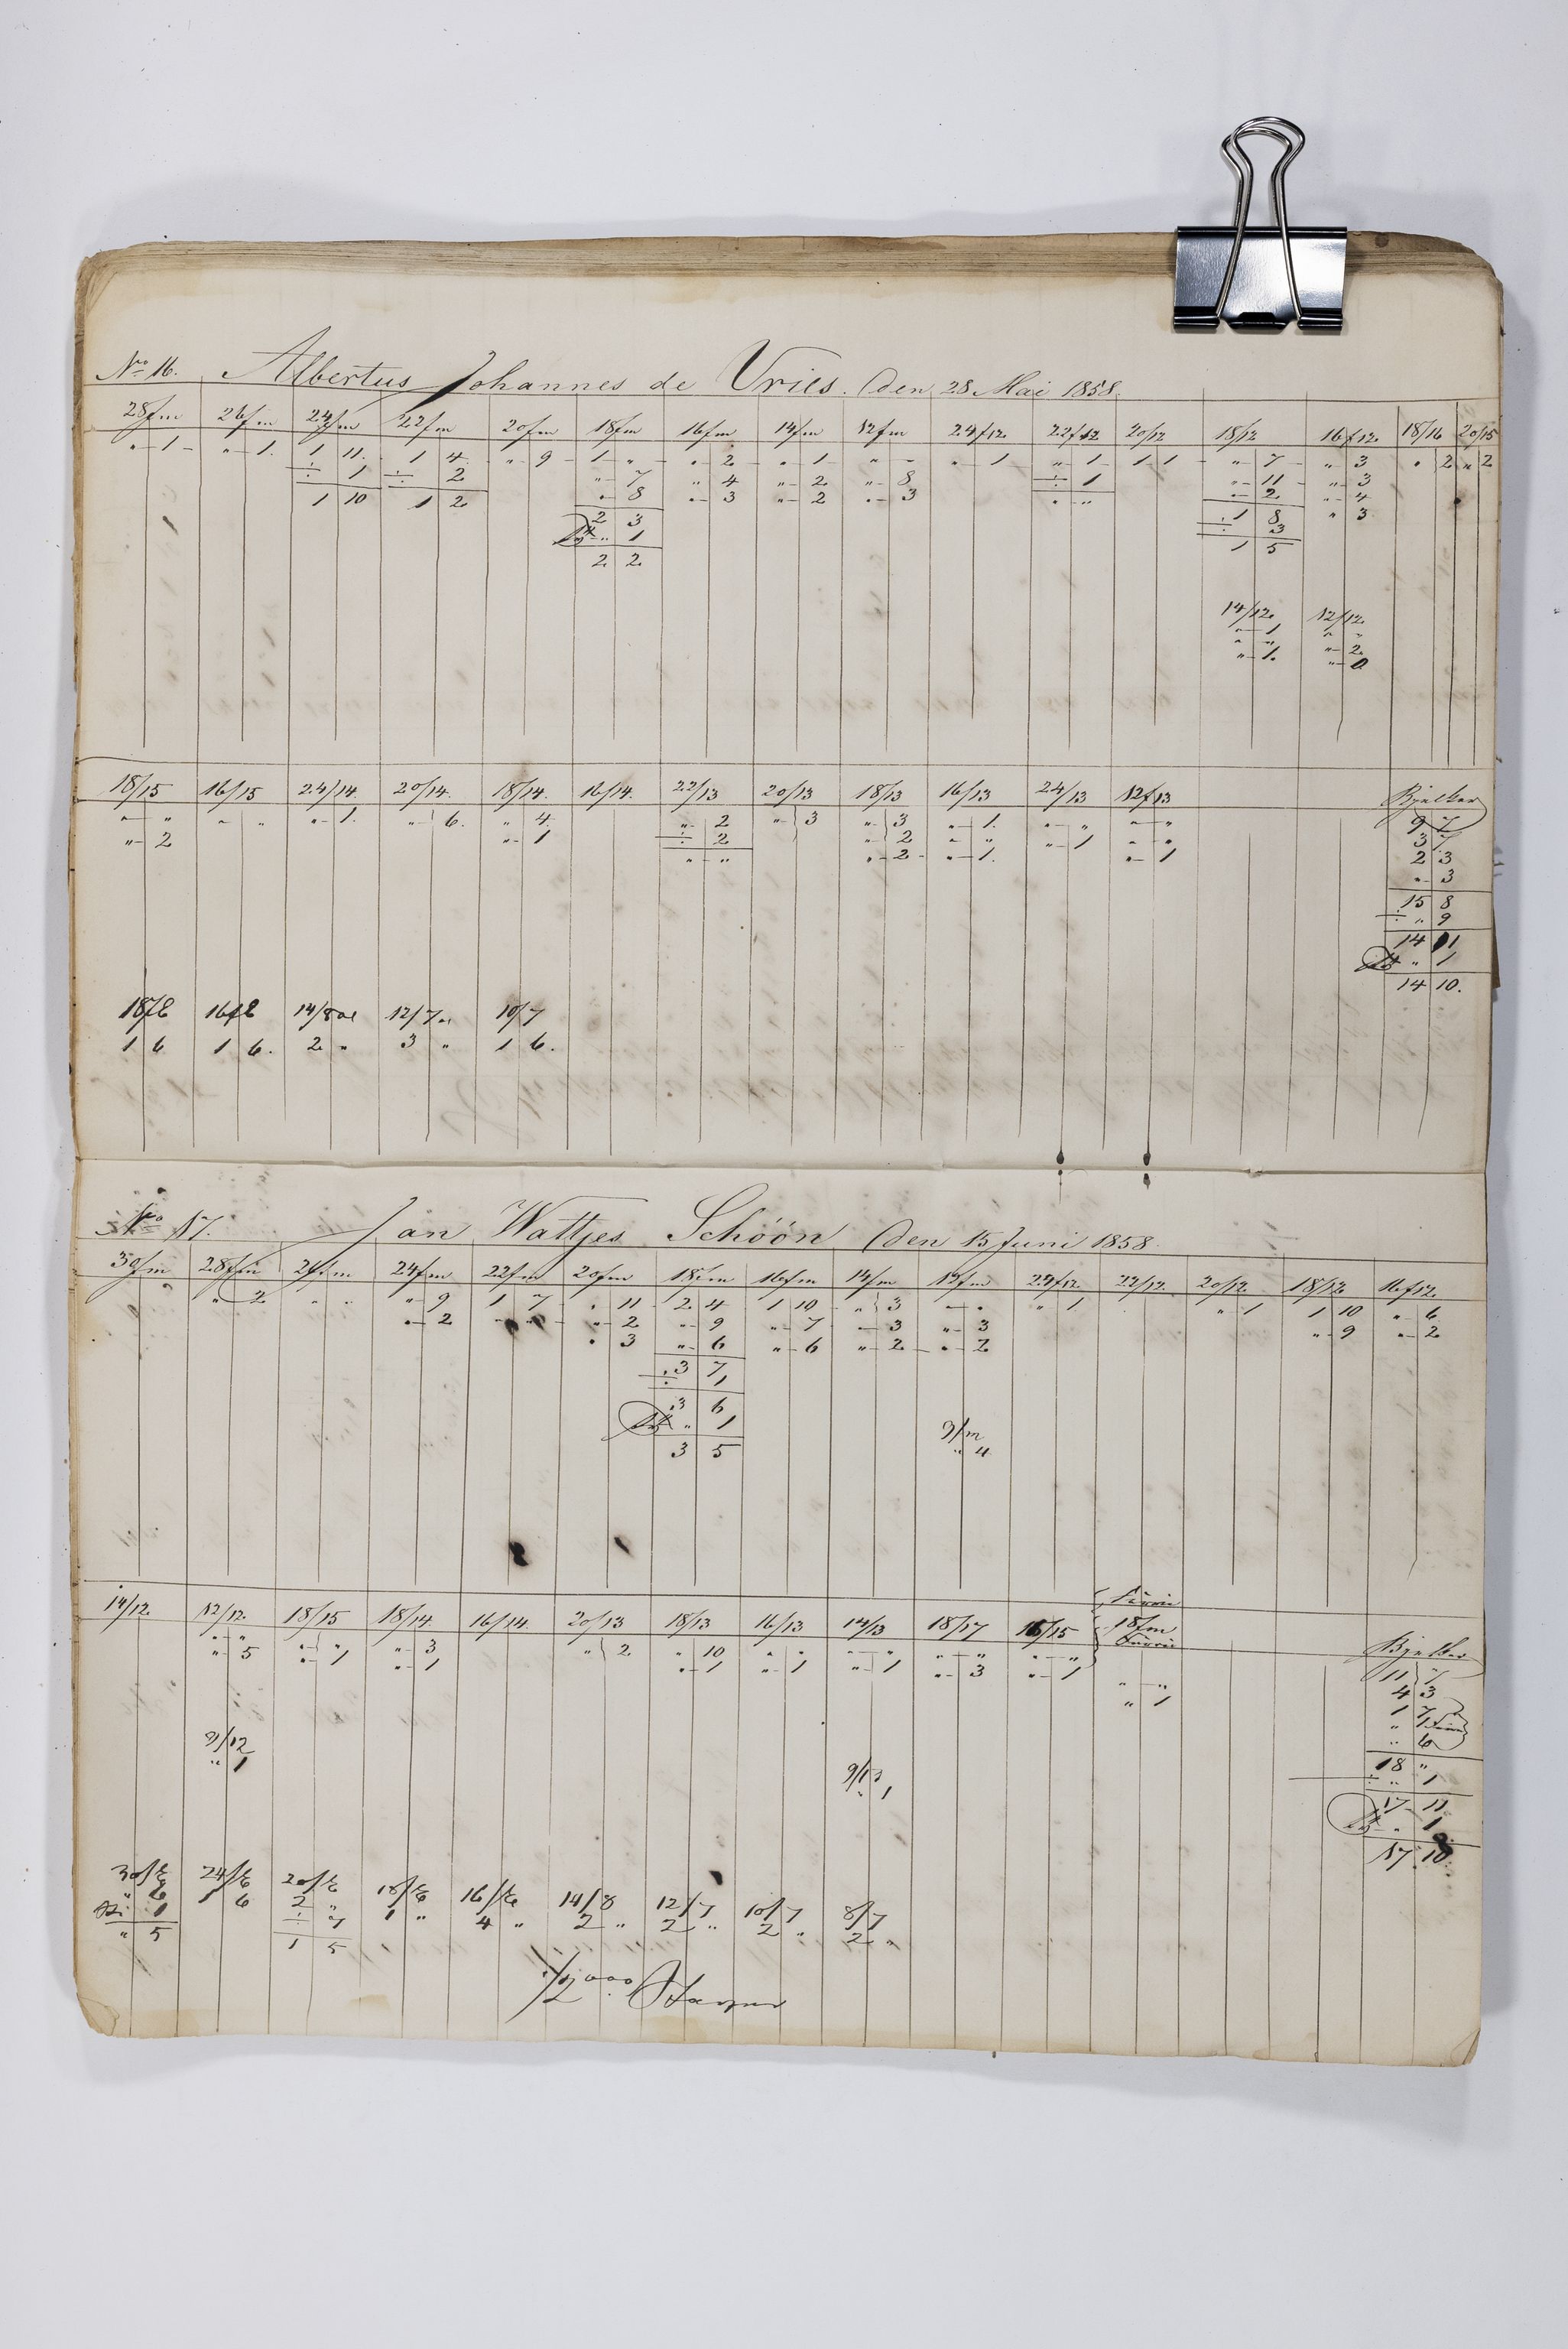 No 16. Albertus Johannes de Vries. Den 28 Mai 1858.
28fm 26fm 24fm 22fm 20fm 18fm 16fm 14fm 12fm 24f12 22f12 20/12 18/12 16f12 18/16 20/15
" 1 " 1 1 11 1 4 " 9 1 " " 2 " 1 " " " 1 " 1 1 1 " 7 " 3 " 2 " 2
÷ 1 ÷ 2 " 7 " 4 " 2 " 8 ÷ 1 " 11 " 3
1 10 1 2 " 8 " 3 " 2 " 3 " " " 2 " 4
2 3 1 8 " 3
" 1 ÷ 3
2 2 1 5
14/12 12/12
" 1 " "
" " " 2
" 1. " 2
18/15 16/15 24/14 20/14 18/14 16/14 22/13 20/13 18/13 16/13 24/13 12f13 Bjelker
" " " " " 1 " 6 " 4 " 2 " 3 " 3 " 1 " " " " 9 7
" 2 " 1 ÷ 2 " 2 " " " 1 " " 3 7
" " " 2 " 1 " 1 2 3
" 3
15 8
÷ " 9
14 11
" 1
14 10.
14/8 12/7 10/7
1 6 1 6. 2 " 3 " 1 6.
No 17. Jan Wattjes Schöön Den 15 Juni 1858.
30fm 28fm 26fm 24fm 22fm 20fm 18fm 16fm 14fm 12fm 24f12 22/12 20/12 18/12 16f12
" 2 " " " 9 1 7 " 11 2 4 1 10 " 3 " " " 1 " 1 1 10 " 6
" 2 " 2 " 9 " 7 " 3 " 3 " 9 " 2
" 3 " 6 " 6 " 2 " 2
3 7
÷ 1
3 6
" 1 9/m
3 5 " 4
14/12 12/12 18/15 18/14 16/14 20/13 18/13 16/13 14/13 18/17 16/15 18fm Bjelker
" " " " " 3 " 2 " 10 " " " " " " " " 11 7
" 5 " 1 " 1 " 1 " 1 " 1 " 3 " 1 " " 4 3
" 1 1 7
" 1
" 6
9/12 18 "
" 1 9/13 ÷ " 1
" 1 17 11
" 1
17 10
14/8 12/7 10/7 8/7
" 6 1 6 2 " 1 " 4 " 2 " 2 " 2 " 2 "
" 5 1 5